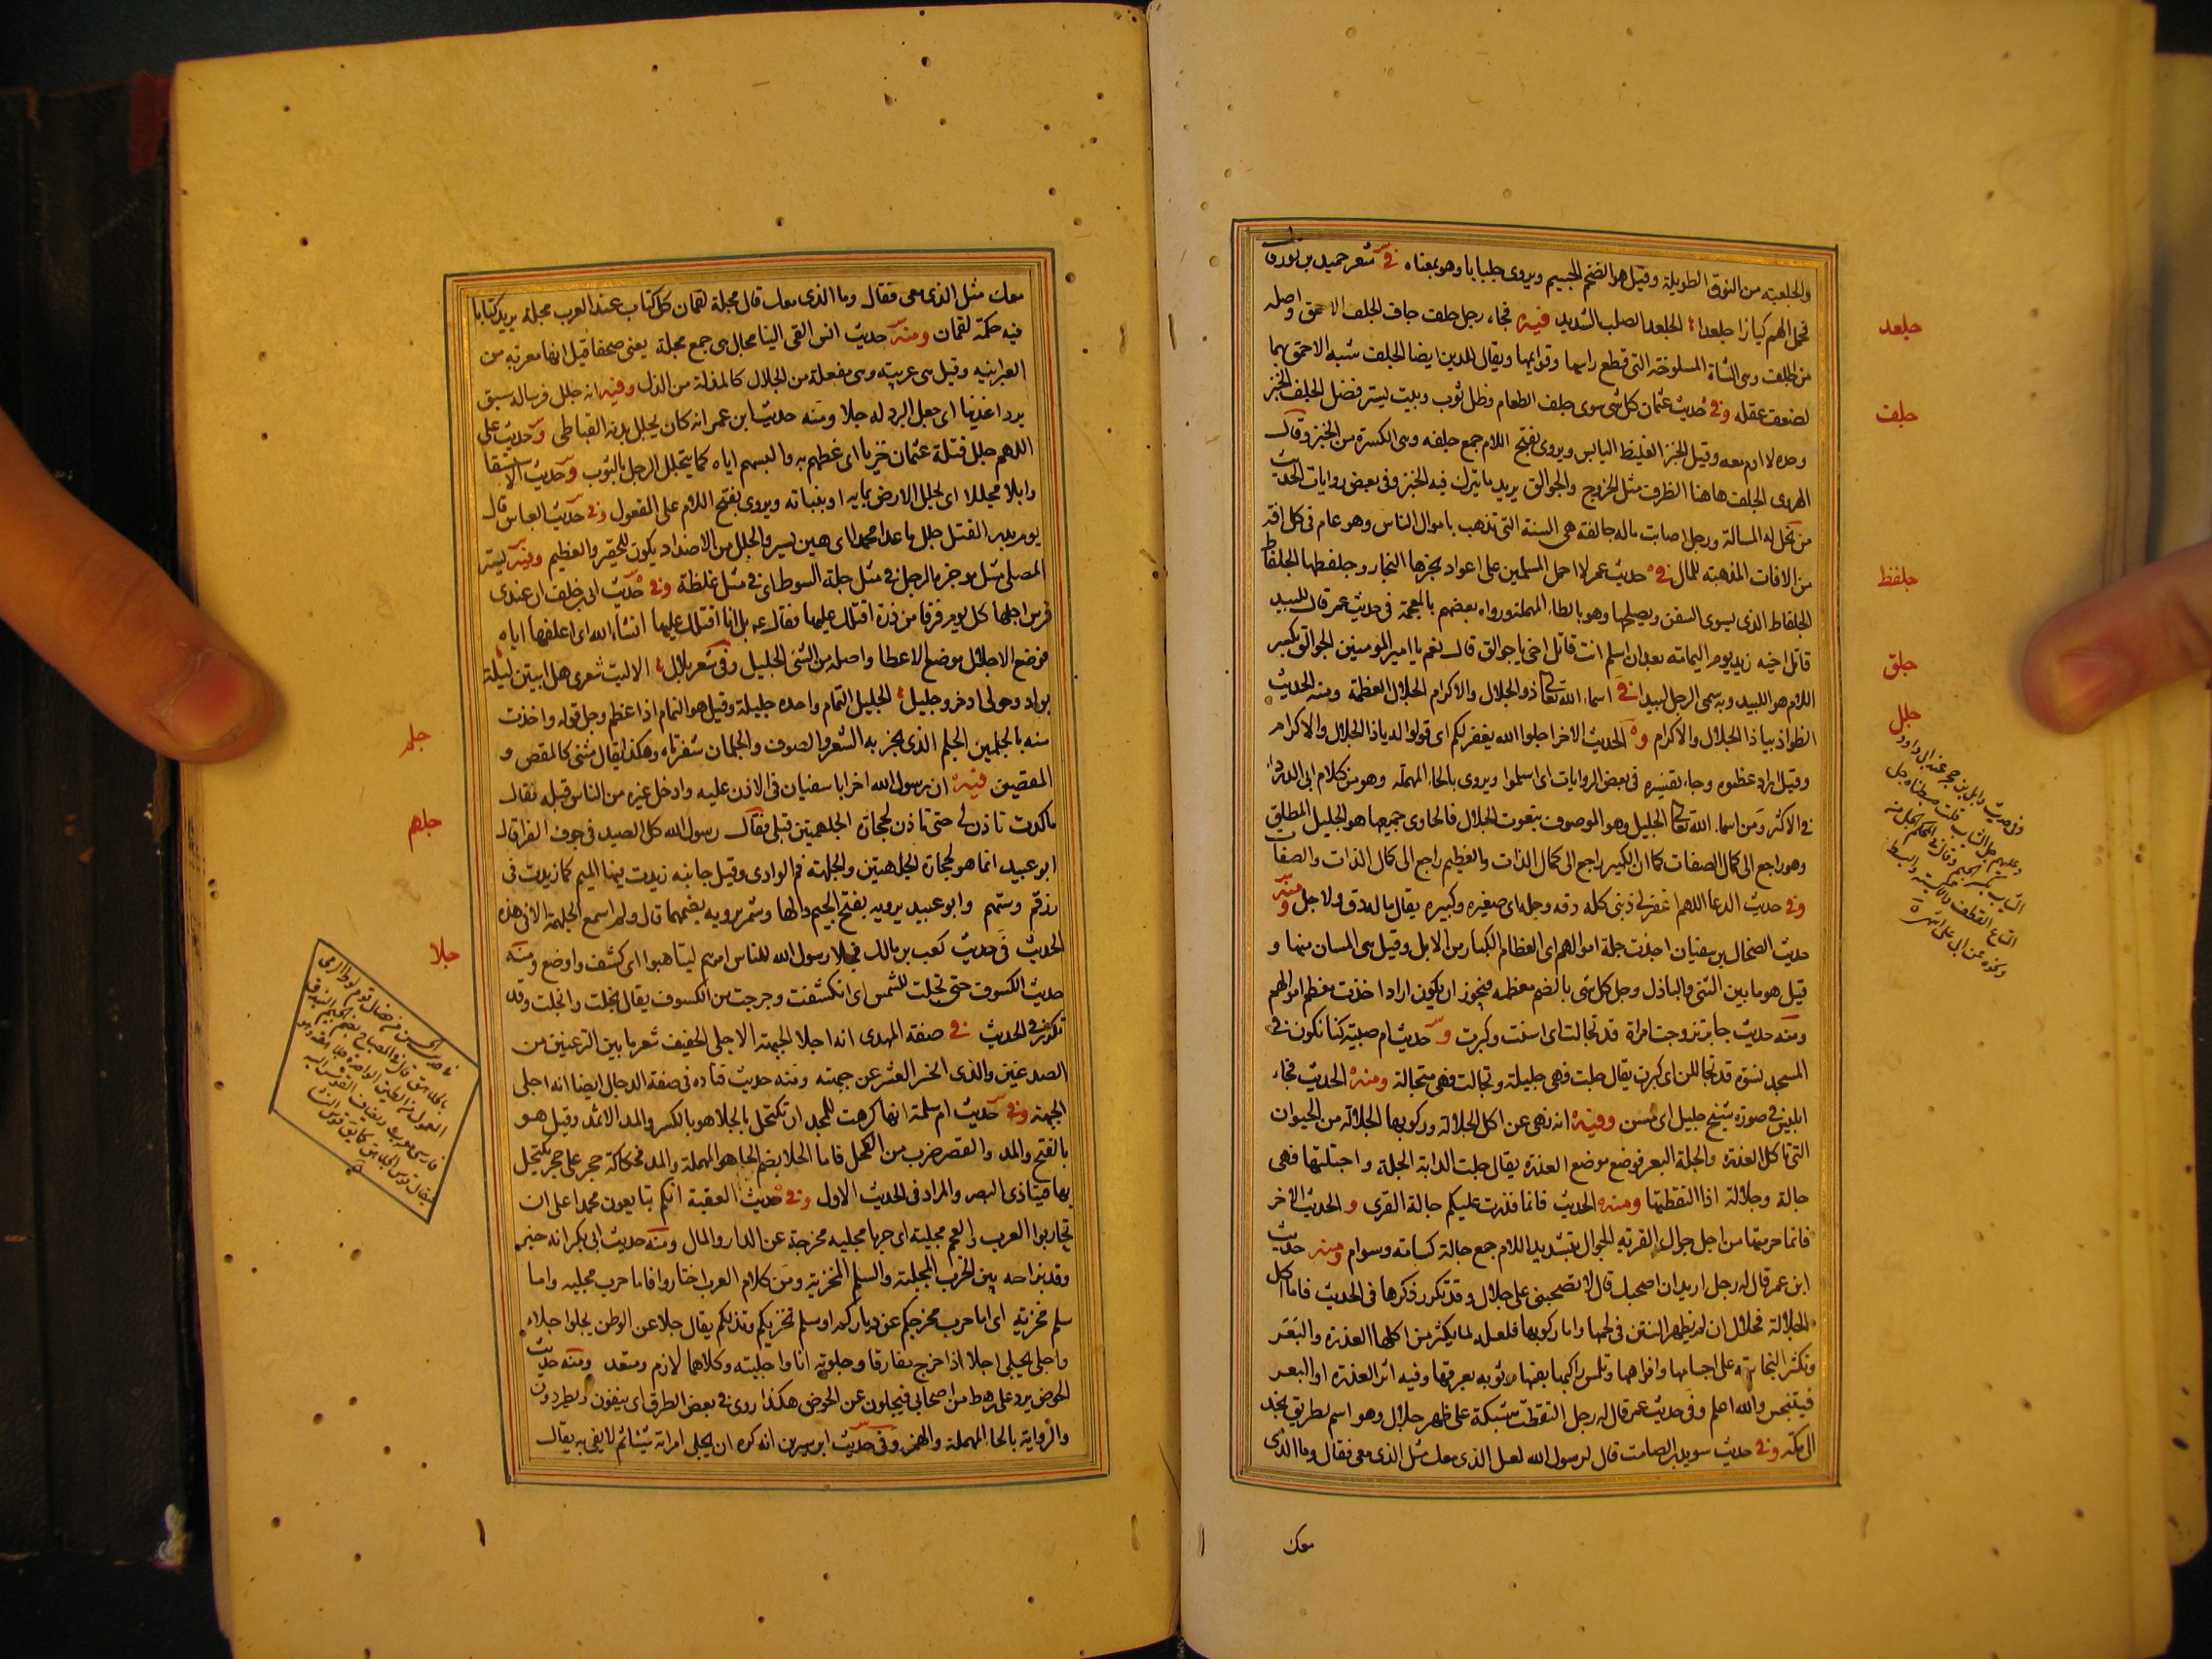 والجلعبة من النوق الطويلة وقيل هو الضخم الجسيم ويروى جلبابا وهو بمعناه في شعر حميد بن ثور
فحمل الهم كنازا جلعدا الجلعد الصلب الشديد فيه فجاء رجل جلف جاف الجلف الاحمق واصله
من الجلف وهى الشاة المسلوخة التى قطع راسها وقوايمها ويقال للدن ايضا الجلف شبه الاحمق بهما
لضعف عقله وفي حديث عثمان كل شى سوى جلف الطعام وظل ثوب وبيت يستر فضل الجلف الخبز
وحده لا ادم معه وقيل الخبز الغليظ اليابس ويروى بفتح اللام جمع جلفه وهى الكسرة من الخبز وقال
الهروى الجلف هاهنا الظرف مثل الخرج والجوالق يريد ما يترك فيه الخبز وفى بعض روايات الحديث
من تحل له المسالة ورجل اصابت ماله جالفة هى السنة التى تذهب باموال الناس وهو عام فى كل افة
من الافات المذهبة للمال في حديث عمر لا احمل المسلمين على اعواد نجرها النجار وجلفطها الجلفاط
الجلفاط الذى يسوى السفن ويصلحها وهو بالطاء المهملة ورواه بعضهم بالمعجمة فى حديث عمر قال للبيد
قاتل اخيه زيد يوم اليمامة بعد ان اسلم انت قاتل اخى يا جوالق قال نعم يا امير المومنين الجوالق بكسر
اللام هو اللبيد وبه سمى الرجل لبيدا في اسماء الله تعالى ذو الجلال والاكرام الجلال العظمة ومنه الحديث
الظوا بيا ذا الجلال والاكرام و الحديث الاخر اجلوا الله يغفر لكم اى قولوا له يا ذا الجلال والاكرام
وقيل اراد عظموه وجاء تفسيره فى بعض الروايات اى اسلموا ويروى بالحاء المهملة وهو من كلام ابى الدرداء
فى الاكثر ومن اسماء الله تعالى الجليل وهو الموصوف بنعوت الجلال فالحاوى جميعها هو الجليل المطلق
وهو راجع الى كمال الصفات كما ان الكبير راجع الى كمال الذات والعظيم راجع الى كمال الذات والصفات
وفي حديث الدعا اللهم اغفر لى ذنبى كله دقه وجله اى صغيره وكبيره يقال ما له دق ولا جل ومنه
حديث الضحاك بن سفيان اخذت جلة اموالهم اى العظام الكبار من الابل وقيل هى المسان منها و
قيل هو ما بين الثنى والباذل وجل كل شى بالضم معظمه فيجوز ان يكون اراد اخذت معظم اموالهم
ومنه حديث جابر تزوجت امراة قد تجالت اى اسنت وكبرت و حديث ام صبية كنا نكون فى
المسجد نسوة قد تجاللن اى كبرن يقال جلت فهى جليلة وتجالت فهى متجالة ومنه الحديث فجاء
ابليس فى صورة شيخ جليل اى مسن وفيه انه نهى عن اكل الجلالة وركوبها الجلالة من الحيوان
التى تاكل العذرة والجلة البعر فوضع موضع العذرة يقال جلت الدابة الجلة واجتلتها فهى
جالة وجلالة اذا التقطتها ومنه الحديث فانما قذرت عليكم جالة القرى و الحديث الاخر
فانما حرمتها من اجل جوال القرية الجوال بتشديد اللام جمع جالة كسامة وسوام ومنه حديث
ابن عمر قال له رجل اريد ان اصحبك قال لا تصحبنى على جلال وقد تكرر ذكرها فى الحديث فاما اكل
الجلالة فحلال ان لم يظهر النتن فى لحمها واما ركوبها فلعله لما يكثر من اكلها العذرة والبعر
وتكثر النجاسة على اجسامها وافواهها وتلمس راكبها بفمها وثوبه بعرقها وفيه اثر العذرة او البعر
فيتنجس والله اعلم وفى حديث عمر قال له رجل التقطت شبكة على ظهر جلال وهو اسم لطريق نجد
الى مكة وفي حديث سويد بن الصامت قال لرسول الله لعل الذى معك مثل الذى معى فقال وما الذى
معك
جلعد
جلف
جلفظ
جلق
جلل
معك مثل الذى معى فقال وما الذى معك قال مجلة لقمان كل كتاب عند العرب مجلة يريد كتابا
فيه حكمة لقمان ومنه حديث انس القى الينا مجال هى جمع مجلة يعنى صحفا قيل انها معربة من
العبرانية وقيل هى عربية وهى مفعلة من الجلال كالمذلة من الذل وفيه انه جلل فرسا له سبق
بردا عدنيا اى جعل البرد له جلا ومنه حديث ابن عمر انه كان يجلل بدنه القباطى و حديث على
اللهم جلل قتلة عثمان خزيا اى غطهم به والبسهم اياه كما يتجلل الرجل بالثوب و حديث الاستسقا
وابلا مجللا اى يجلل الارض بمايه او بنباته ويروى بفتح اللام على المفعول وفي حديث العباس قال
يوم بدر القتل جلل ما عدا محمدا اى هين يسير والجلل من الاضداد يكون للحقير والعظيم وفيه يستر
المصلى مثل موخرة الرحل فى مثل جلة السوط اى فى مثل غلظة وفي حديث ابى بن خلف ان عندى
فرس اجلها كل يوم فرقا من ذرة اقتلك عليها فقال عم بل انا اقتلك عليها انشاء الله اى اعلفها اياه
فوضع الاجلال موضع الاعطا واصله من الشى الجليل وفي شعر بلال الا ليت شعرى هل ابيتن ليلة
بواد وحولى اذخر وجليل الجليل الثمام واحده جليلة وقيل هو الثمام اذا عظم وجل قوله واخذت
منه بالجلمين الجلم الذى يجز به الشعر والصوف والجلمان شفرتاه وهكذا يقال مثنى كالمقص و
المقصين فيه ان رسول الله اخر ابا سفيان فى الاذن عليه وادخل غيره من الناس قبله فقال
ما كدت تاذن لى حتى تاذن لحجارة الجلهمتين قبلى فقال رسول الله كل الصيد فى جوف الفرا قال
ابو عبيد انما هو لحجارة الجلهتين والجلهة فم الوادى وقيل جانبه زيدت فيها الميم كما زيدت فى
زرقم وستهم وابو عبيد يرويه بفتح الجيم والها وشمر يرويه بضمهما قال ولم اسمع الجلهمة الا فى هذه
الحديث في حديث كعب بن مالك فجلا رسول الله للناس امرهم ليتاهبوا اى كشف واوضح ومنه
حديث الكسوف حتى تجلت للشمس اى انكشفت وخرجت من الكسوف يقال تجلت وانجلت وقد
تكرر فى الحديث في صفة المهدى انه اجلا الجبهة الاجلى الخفيف شعر ما بين النزعتين من
الصدغين والذى انحسر الشعر عن جبهته ومنه حديث قتاده فى صفة الدجال ايضا انه اجلى
الجبهة وفي حديث ام سلمة انها كرهت للمحد ان تكتحل بالجلا هو بالكسر والمد الاثمد وقيل هو
بالفتح والمد والقصر ضرب من الكحل فاما الحلا بضم الحا هو المهملة والمد فحكاكة حجر على حجر يكتحل
بها فيتاذى البصر والمراد فى الحديث الاول وفي حديث العقبة انكم تبايعون محمدا على ان
تحاربوا العرب والعجم مجلية اى حربا مجلية مخرجة عن الدار والمال ومنه حديث ابى بكر انه خير
وفد بزاخه بين الحرب المجلية والسلم المخزية ومن كلام العرب اختاروا فاما حرب مجلية واما
سلم مخزية اى اما حرب تخرجكم عن دياركم او سلم تخزيكم وتذلكم يقال جلا عن الوطن يجلوا جلاء
واجلى يجلى اجلاا اذا خرج مفارقا وجلوته انا واجليته وكلاهما لازم ومتعد ومنه حديث
الحوض يرد على رهط من اصحابى فيجلون عن الحوض هكذا روى فى بعض الطرق اى ينفون ويطردون
والرواية بالحاء المهملة والهمز وفى حديث ابن سيرين انه كره ان يجلى امراته شيئا ثم لا يفى به يقال
جلم
جلهم
جلا